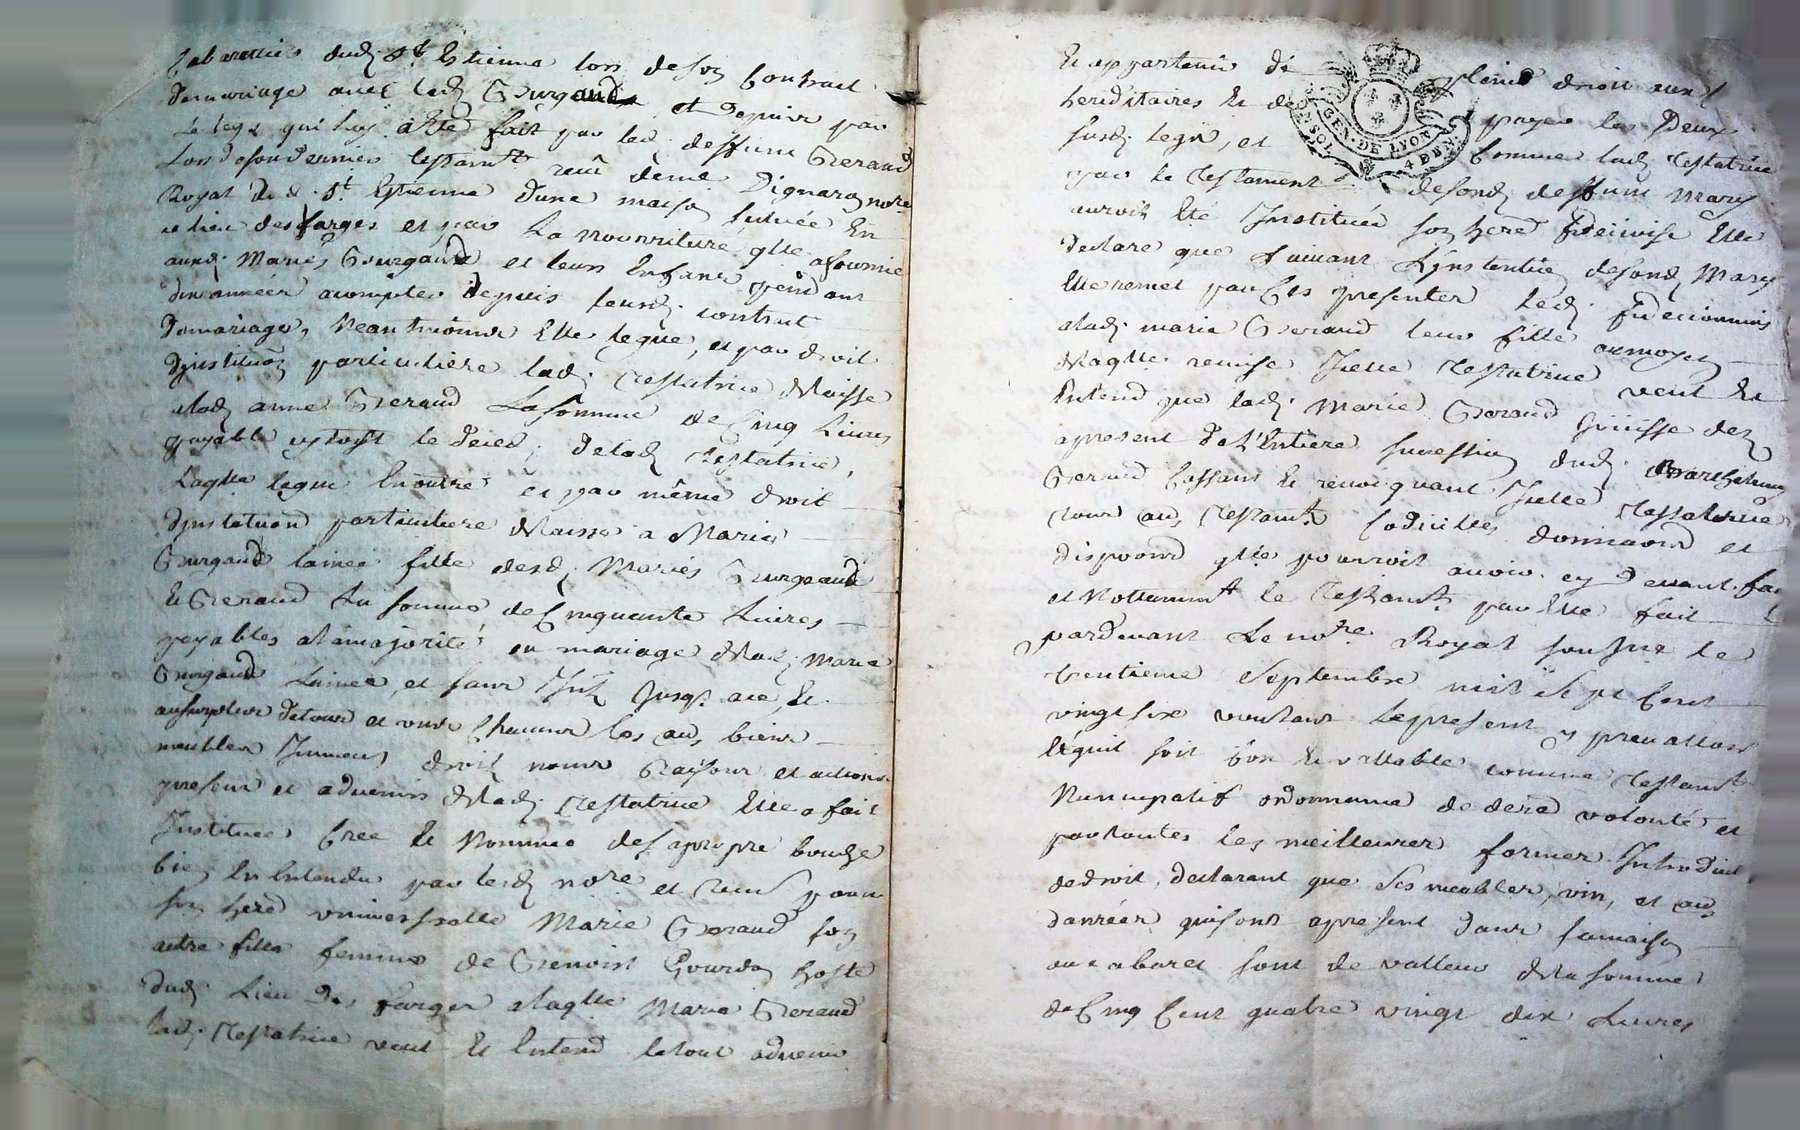 Cabarettier dud. St Estienne lors de son Contract
demariage avec lad. Gurgaud et depuis par
le legs qui luy a été fait par led. deffunt Geraud
Lors desondernier testamt receu de me Dignaron nore
Royal dud. St Estienne d'une maison scituée En
ce lieu des farges et par La nourriture qlle afournie
auxd. Mariés Gurgaud et leurs Enfans pendant
dix années acompter depuis leusd. contract
demariage, Neantmoins Elle legue, et par droit
djnstituon particuliere lad. Testatrice Delaisse
alad. anne Geraud Lasomme de Cinq Livres
payable aytost le deied, delad. testatrice,
Laqlle legue En outre et par même droit
djnstituon particuliere delaisse a Marie
Gurgaud lainée fille desd. Mariés Gurgeaud
Et Geraud La somme de Cinquante Livres
payables alamajorité ou mariage delad. Marie
Gurgaud Lainée, et sans Jnt. Jusq. ace, Et
ausurplus detous et uns Chacuns les aus biens
meubles Jmmeu droit noms Raisons et actions
presens et advenir delad. Testatrice Elle a fait
Jnstitué Créé Et Nommé desapropre bouche
bien Entendu par led. nore et tems pour
son here universselle Marie Geraud son
autre fille femme de Benoist Gourdon hoste
dud. Lieu Des farges alaqlle Marie Geraud
lad. Testatrice veut Et Entend letout advenir
Et appartenir de pleins droit aux
hereditaires Et de payer les Deux
susd. legs, et Comme lad. Testatrice
par le Testament desond. deffunt Mary
auroit Eté Jnstituée son here fideicoise Elle
declare que suivant L'jntention desond. Mary
Elle remet par Ces presentes led. fideicommis
alad. marie Geraud leur fille aumoyen
delaqlle remise Jcelle Testatrice veut Et
Entend que lad. Marie Geraud Jouisse dez
apresent de L'Entiere succession dud. Barthelemy
Geraud Cassant Et revoquant Jcelle Testatrice
tous aus Testamt Codicilles donnaons et
disposons qlle pourroit avoir cy devant fai
et Nottamment le Testamt par Elle fait
pardevant Le nore Royal soussné le
trentieme Septembre mil Sept Cent
vingt six voulant Lepresent y prevalloir
Etquil soit bon Et vallable comme Testamt
Nuncupatif ordonnance de dere volonté et
partoutes les meilleures formes Jntroduit
dedroit, declarant que Ses meubles, vin, et aus
danrées quisont apresent dans samaison
ou cabaret sont de valleur dela somme
de Cinq Cent quatre vingt dix Livres
GEN. DE LYON
4 DEN.